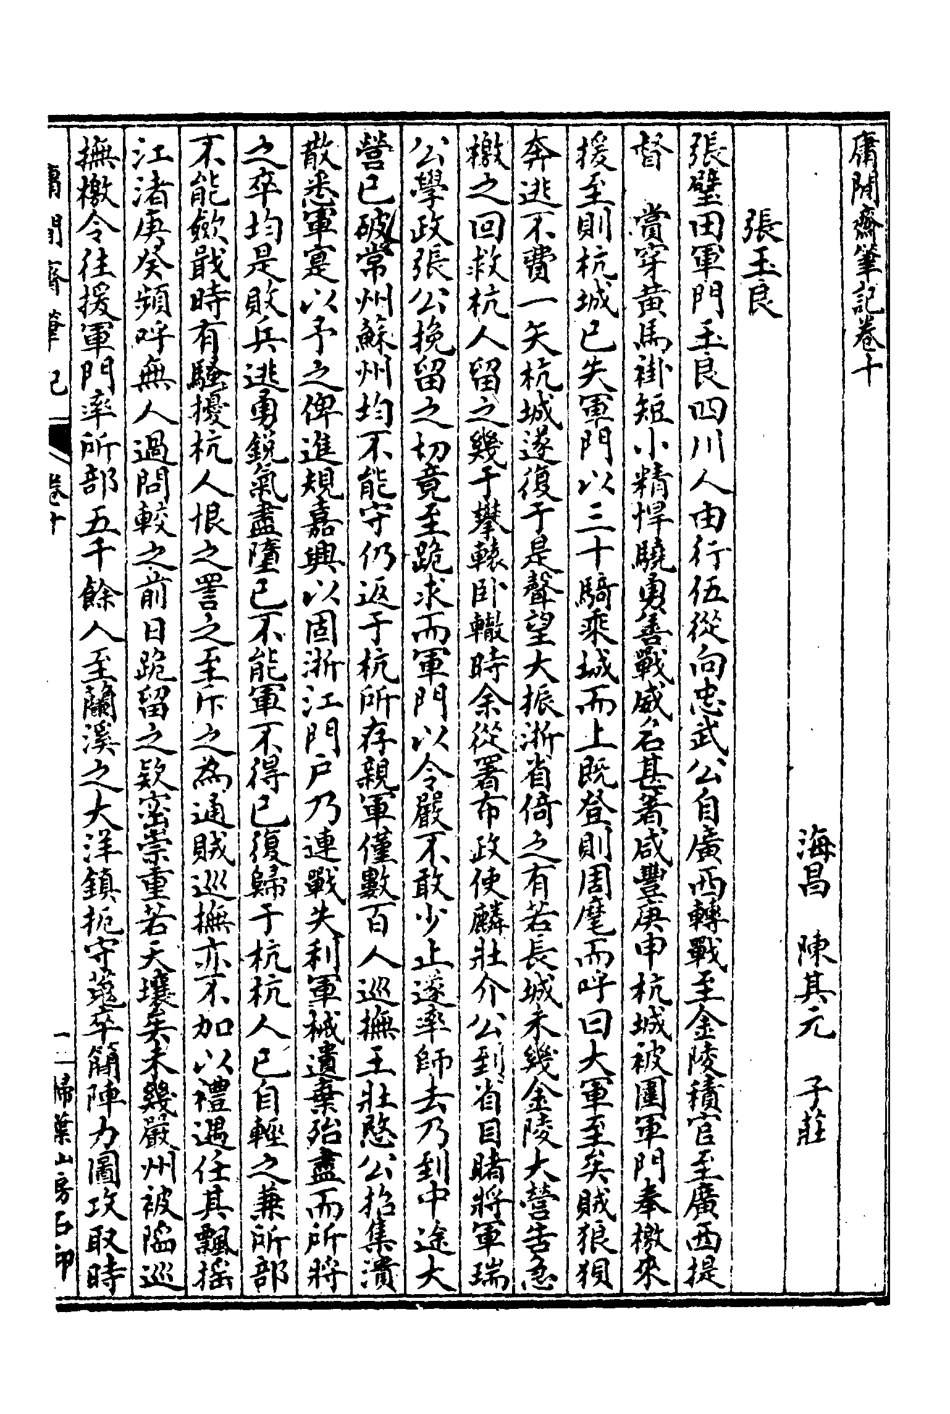 庸閒齋筆記卷十
海昌　陳其元　子莊
張玉良
張璧田軍門玉良四川人由行伍從向忠武公自廣西轉戰至金陵積官至廣西提
督　賞穿黃馬褂短小精悍驍勇善戰威名甚著咸豐庚申杭城被圍軍門奉檄來
援至則杭城已失軍門以三十騎乘城而上既登則周麾而呼曰大軍至矣賊狼狽
奔逃不費一矢杭城遂復于是聲望大振浙省倚之有若長城未幾金陵大營告急
檄之回救杭人留之幾于攀轅卧轍時余從署布政使麟壯介公到省目睹將軍瑞
公學政張公挽留之切竟至跪求而軍門以令嚴不敢少止遂率師去乃到中途大
營已破常州蘇州均不能守仍返于杭所存親軍僅數百人巡撫王壯愍公招集潰
散悉軍寔以予之俾進規嘉興以固浙江門戶乃連戰失利軍械遺棄殆盡而所將
之卒均是敗兵逃勇銳氣盡墮已不能軍不得已復歸于杭杭人已自輕之兼所部
不能歛戢時有騷擾杭人恨之詈之至斥之為通賊巡撫亦不加以禮遇任其飄搖
江渚庚癸頻呼無人過問較之前日跪留之欵密崇重若天壤矣未幾嚴州被陷巡
撫檄令往援軍門率所部五千餘人至蘭溪之大洋鎮扼守蒐卒簡陣力圖攻取時
庸閒齋筆記　卷十　一　掃葉山房石印